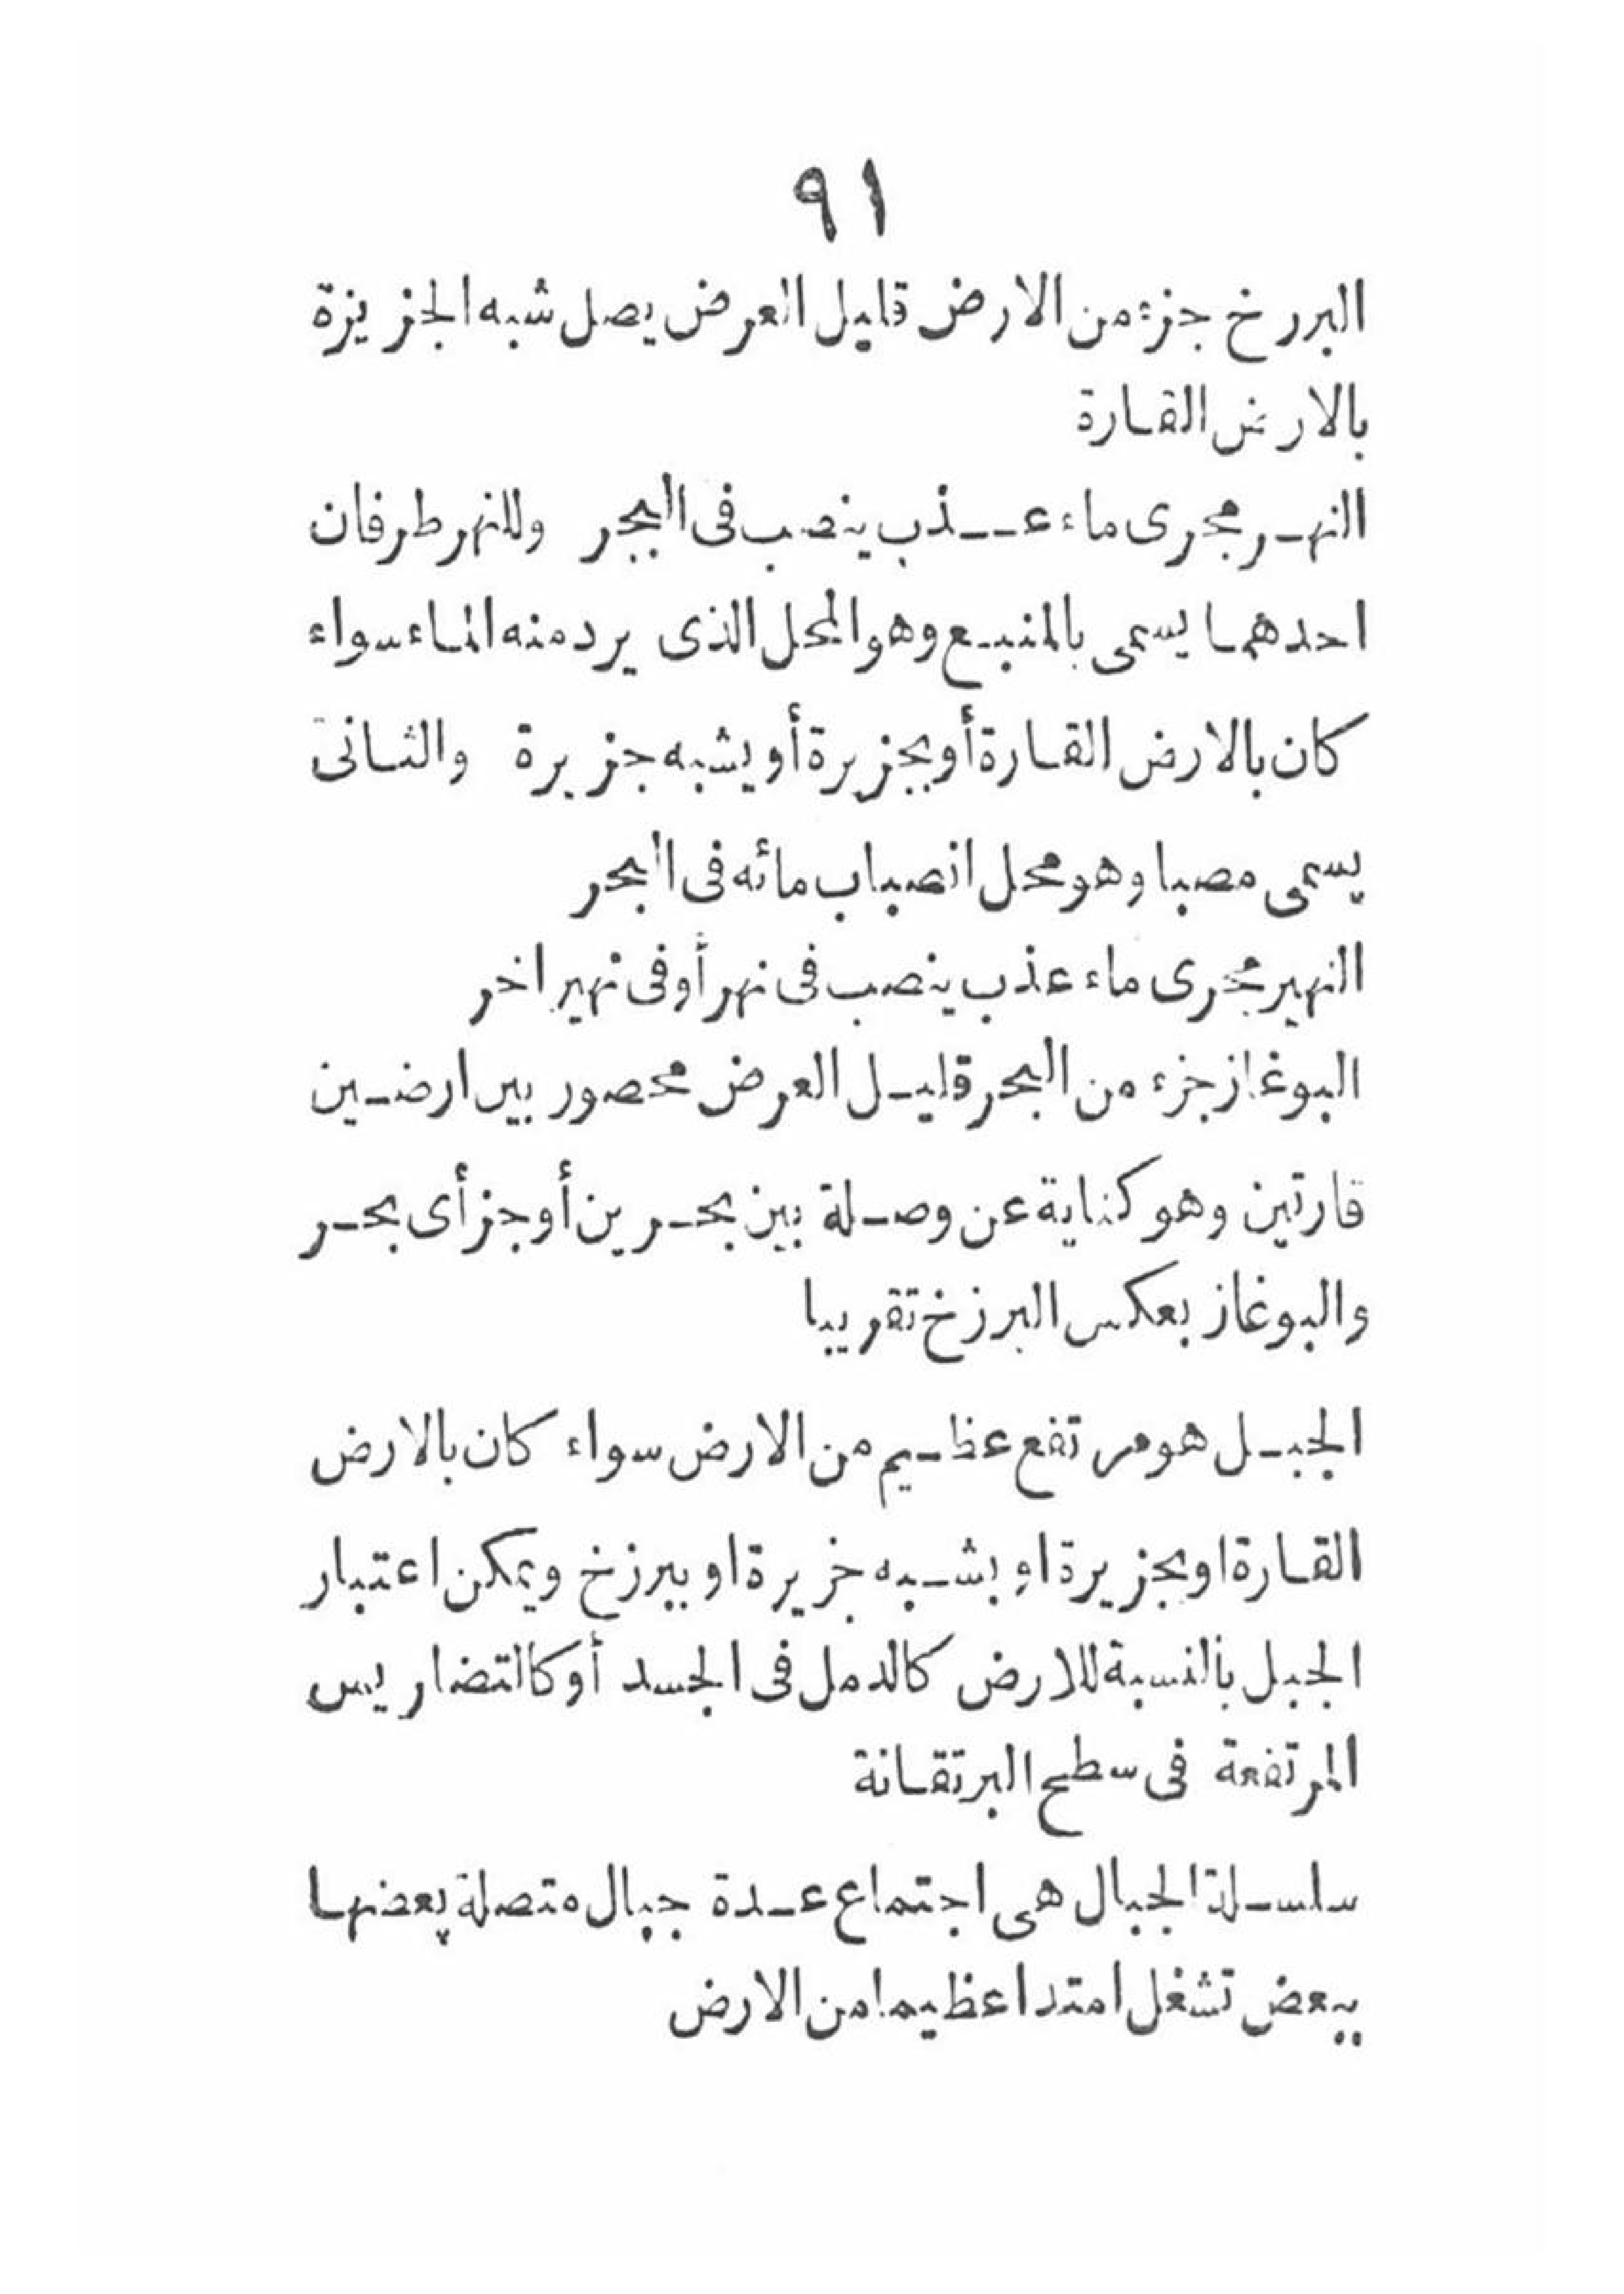 ٩١
البررخ جزء من الارض قليل العرض يصل شبه الجزيزة
بالارض القارة
النهر مجرى ماء عذب ينصب فى البحر وللنهر طرفان
احدهما يسمى بالمنبع وهو المحل الذى يرد منه الماء سواء
كان بالارض القارة أو بجزيرة أو يشبه جزيرة والثانى
يسمى مصبا وهو محل انصباب مائه فى البحر
النهير مجرى ماء عذب ينصب فى نهر أو فى نهير اخر
البوغاز جزء من البحر قليل العرض محصور بين ارضين
قارتين وهو كناية عن وصلة بين بحرين أو جزأى بحر
والبوغاز بعكس البرزخ تقريبا
الجبل هو مرتفع عظيم من الارض سواء كان بالارض
القارة او بجزيرة او بشبه خزيرة او ببرزخ ويمكن اعتبار
الجبل بالنسبة للارض كالدمل فى الجسد أو كالتضاريس
المرتفعة فى سطح البرتقانة
سلسلة الجبال هى اجتماع عدة جبال متصلة بعضها
ببعض تشغل امتدا عظيما من الارض